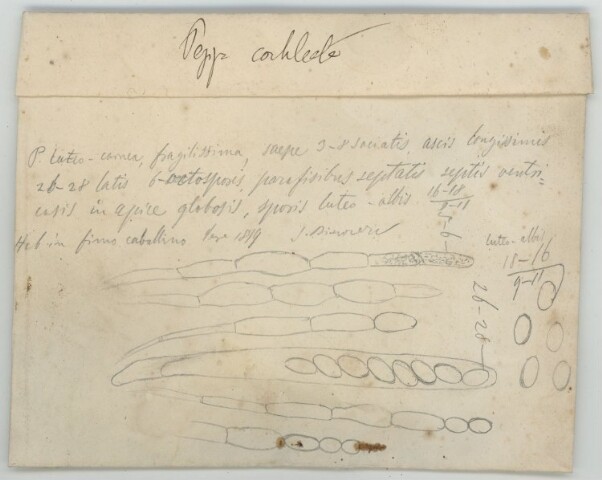 cochleata
P. luteo-carnea, fragilissima, saepe 3-8 sociatis, ascis longissimis
26-28 latis 6-octosporis, parafisibus septatis septis ventri-
cosis in apice globosis, sporis luteo-albis. 16-18
9-11
Hab in fimo caballino 1889
26-28
luteo-albis
18-16
9-11
26-28